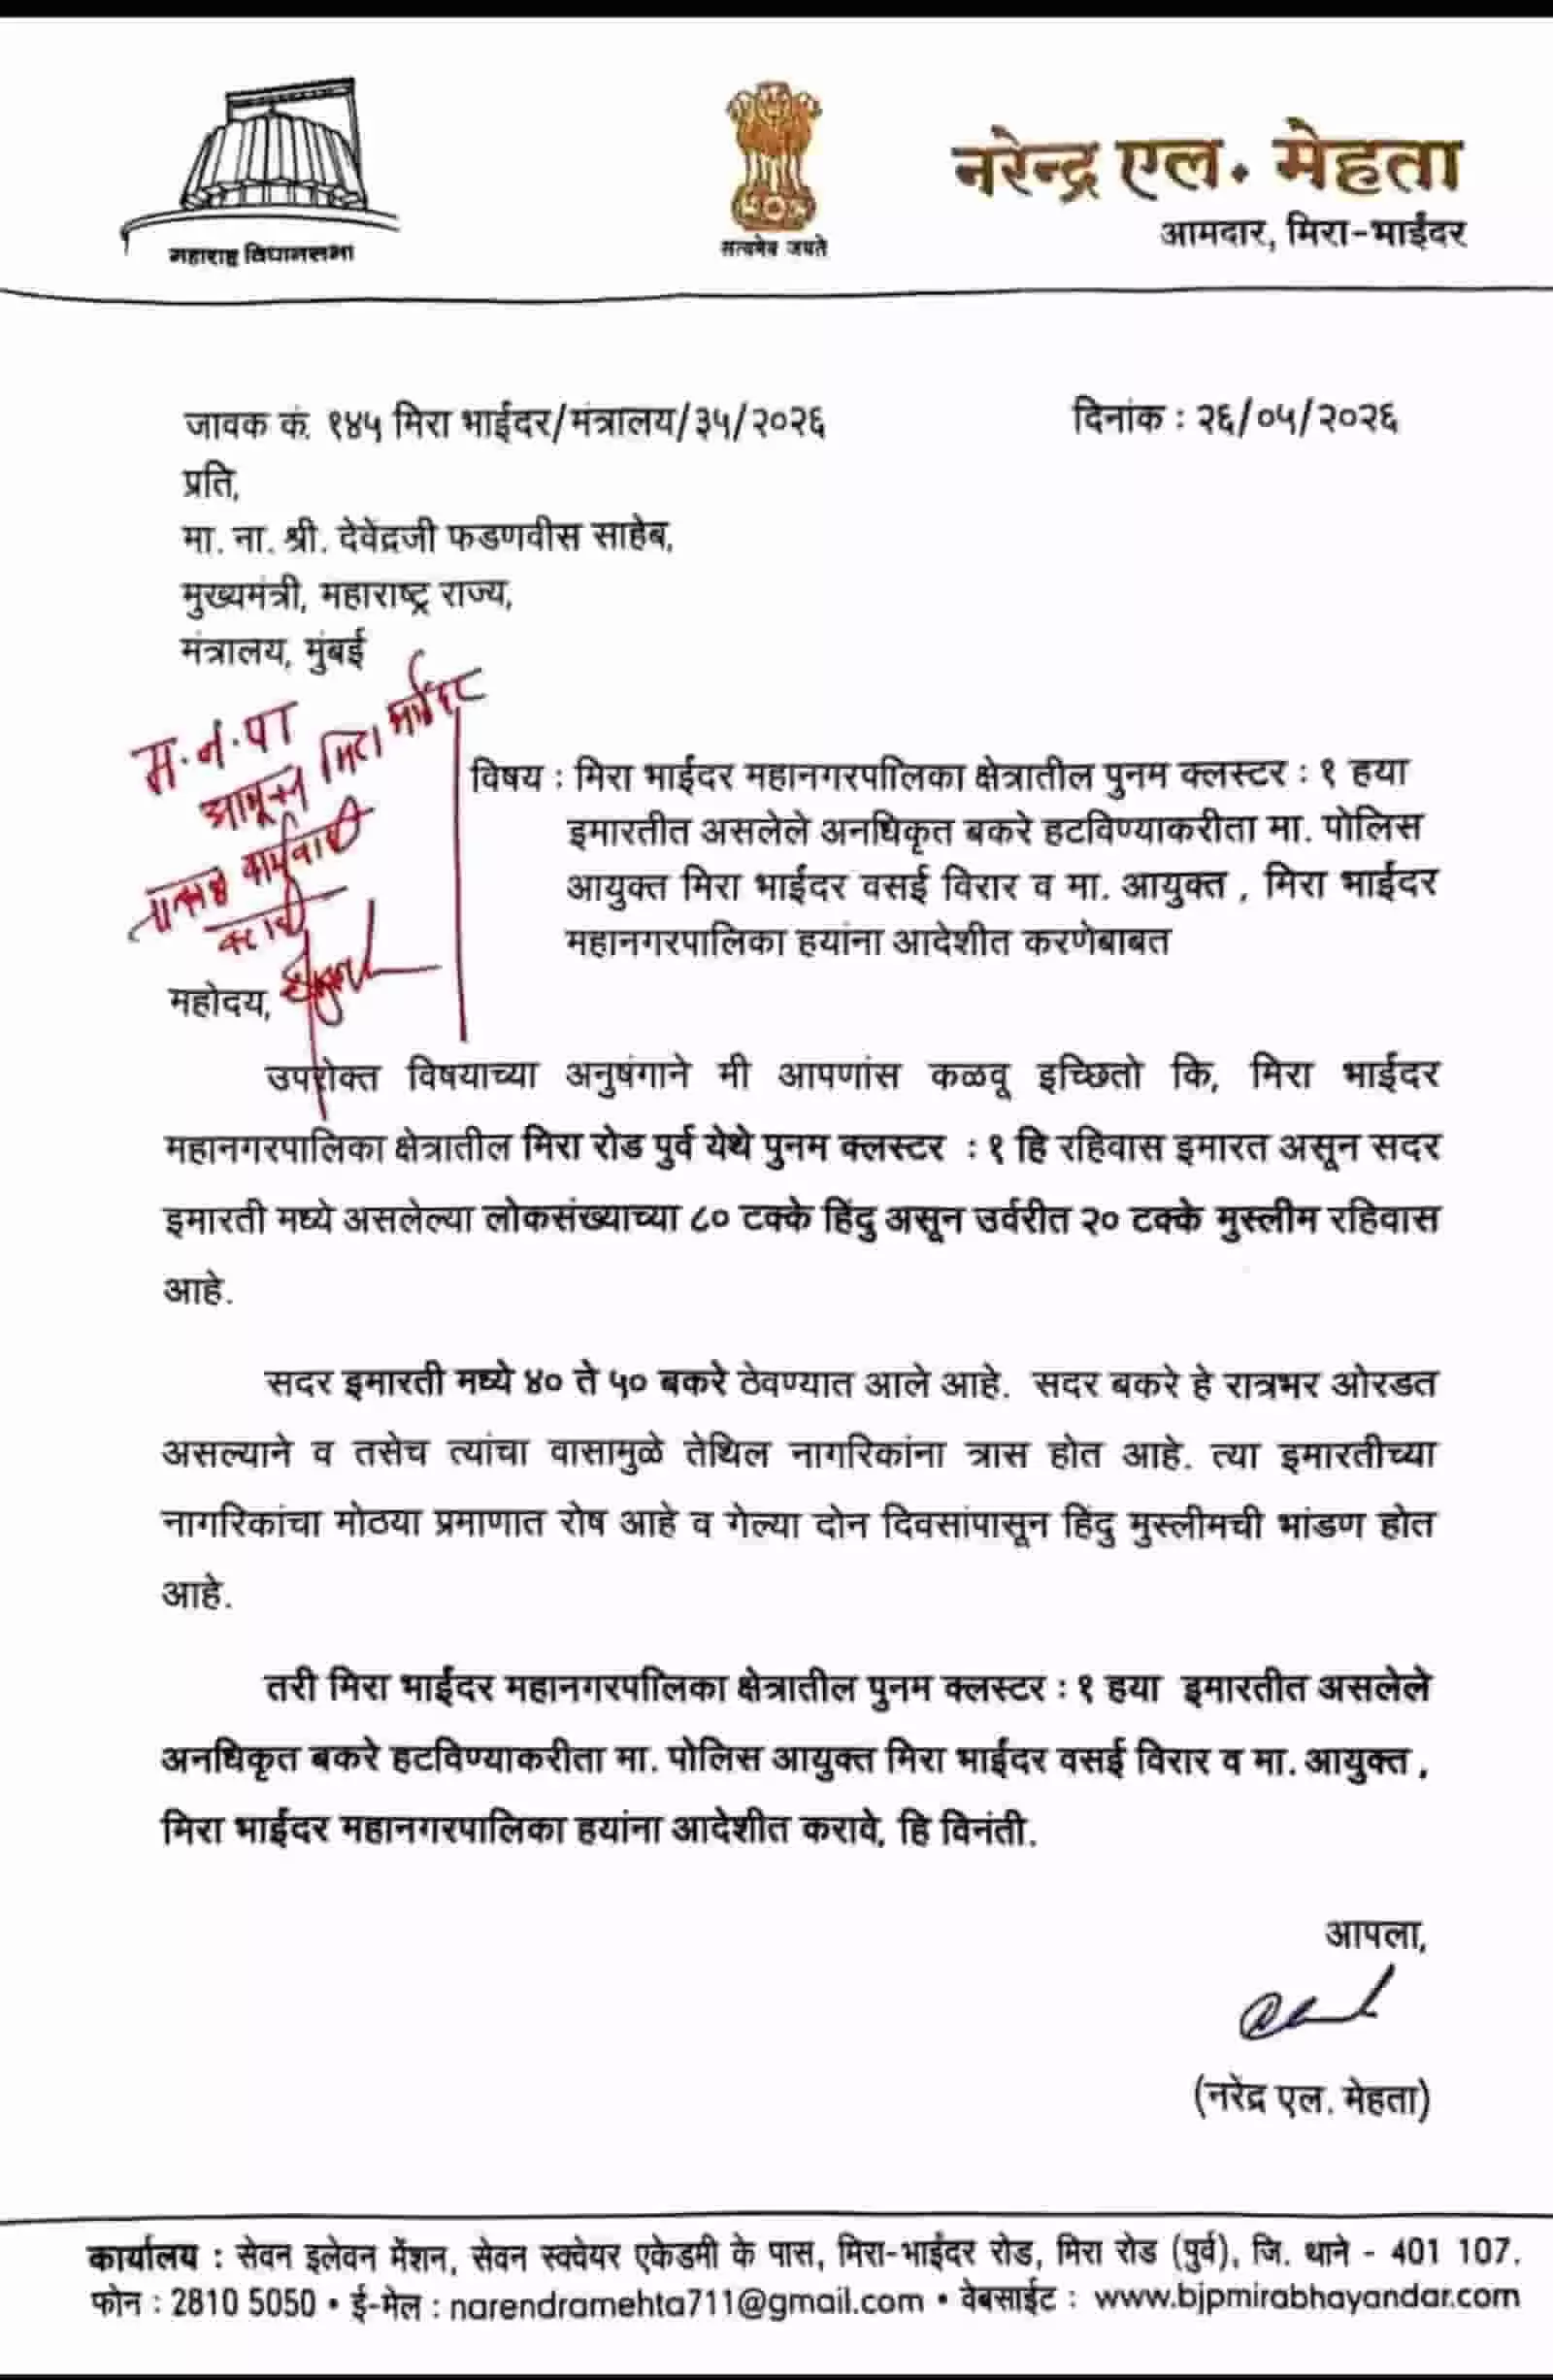 महाराष्ट्र विधानसभा
सत्यमेव जयते
नरेन्द्र एल. मेहता
आमदार, मिरा-भाईंदर
जावक कं. १४५ मिरा भाईंदर/मंत्रालय/३५/२०२६
दिनांक : २६/०५/२०२६
प्रति,
मा. ना. श्री. देवेंद्रजी फडणवीस साहेब,
मुख्यमंत्री, महाराष्ट्र राज्य,
मंत्रालय, मुंबई
म.न.पा
आयुक्त मिरा भाईंदर
कार्यवाही
करावी
विषय : मिरा भाईंदर महानगरपालिका क्षेत्रातील पुनम क्लस्टर : १ हया
इमारतीत असलेले अनधिकृत बकरे हटविण्याकरीता मा. पोलिस
आयुक्त मिरा भाईंदर वसई विरार व मा. आयुक्त , मिरा भाईंदर
महानगरपालिका हयांना आदेशीत करणेबाबत
महोदय,
उपरोक्त विषयाच्या अनुषंगाने मी आपणांस कळवू इच्छितो कि, मिरा भाईंदर
महानगरपालिका क्षेत्रातील मिरा रोड पुर्व येथे पुनम क्लस्टर : १ हि रहिवास इमारत असून सदर
इमारती मध्ये असलेल्या लोकसंख्याच्या ८० टक्के हिंदु असून उर्वरीत २० टक्के मुस्लीम रहिवास
आहे.
सदर इमारती मध्ये ४० ते ५० बकरे ठेवण्यात आले आहे. सदर बकरे हे रात्रभर ओरडत
असल्याने व तसेच त्यांचा वासामुळे तेथिल नागरिकांना त्रास होत आहे. त्या इमारतीच्या
नागरिकांचा मोठया प्रमाणात रोष आहे व गेल्या दोन दिवसांपासून हिंदु मुस्लीमची भांडण होत
आहे.
तरी मिरा भाईंदर महानगरपालिका क्षेत्रातील पुनम क्लस्टर : १ हया इमारतीत असलेले
अनधिकृत बकरे हटविण्याकरीता मा. पोलिस आयुक्त मिरा भाईंदर वसई विरार व मा. आयुक्त ,
मिरा भाईंदर महानगरपालिका हयांना आदेशीत करावे, हि विनंती.
आपला,
(नरेंद्र एल. मेहता)
कार्यालय : सेवन इलेवन मेंशन, सेवन स्क्वेयर एकेडमी के पास, मिरा-भाईंदर रोड, मिरा रोड (पुर्व), जि. थाने - 401 107.
फोन : 2810 5050 • ई-मेल : narendramehta711@gmail.com • वेबसाईट : www.bjpmirabhayandar.com